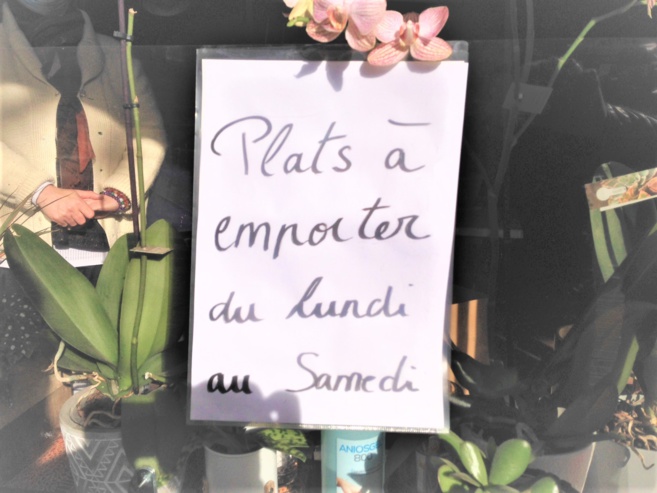 Plats à
emporter
du lundi
au Samedi